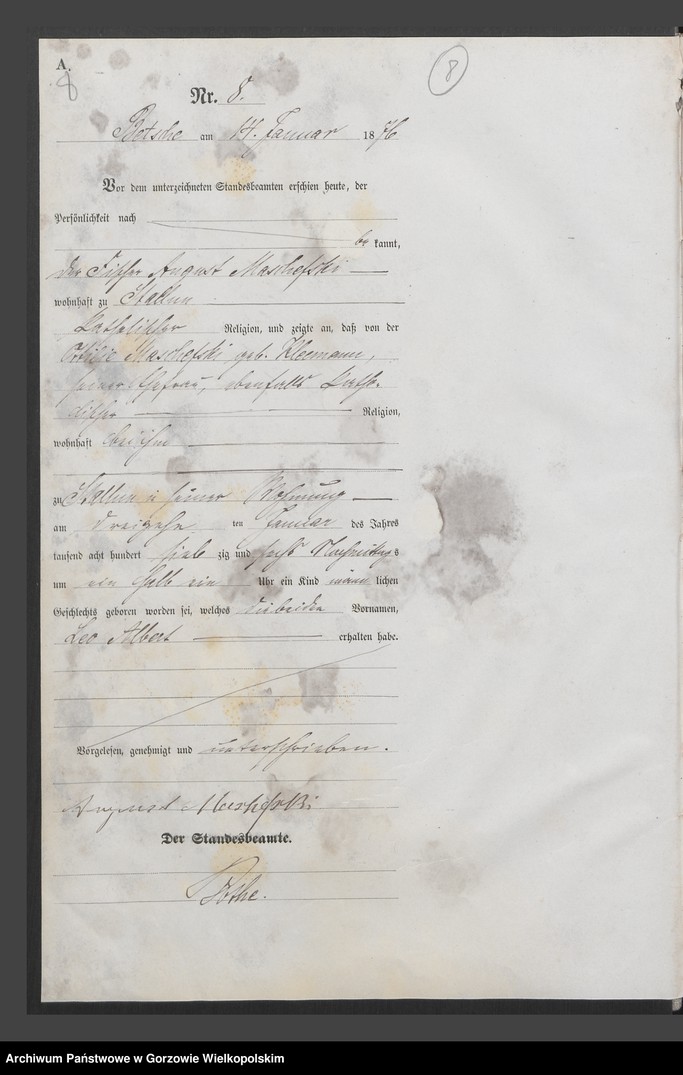 A.
8
8
Nr. 8.
Betsche am 14. Januar 1876
Vor dem unterzeichneten Standesbeamten erschien heute, der
Persönlichkeit nach
be kannt,
der Fischer August Maschefski
wohnhaft zu Stallun
katholischer Religion, und zeigte an, daß von der
Ottilie Maschefski geb. Kleemann,
seiner Ehefrau, ebenfalls katho-
lischer Religion,
wohnhaft bei ihm
zu Stallun in seiner Wohnung
am dreizehn ten Januar des Jahres
tausend acht hundert sieb zig und sechs Nachmittags
um ein halb ein Uhr ein Kind männ lichen
Geschlechts geboren worden sei, welches die beiden Vornamen,
Leo Albert erhalten habe.
Vorgelesen, genehmigt und unterschrieben.
August Maschefski
Der Standesbeamte.
Archiwum Państwowe w Gorzowie Wielkopolskim